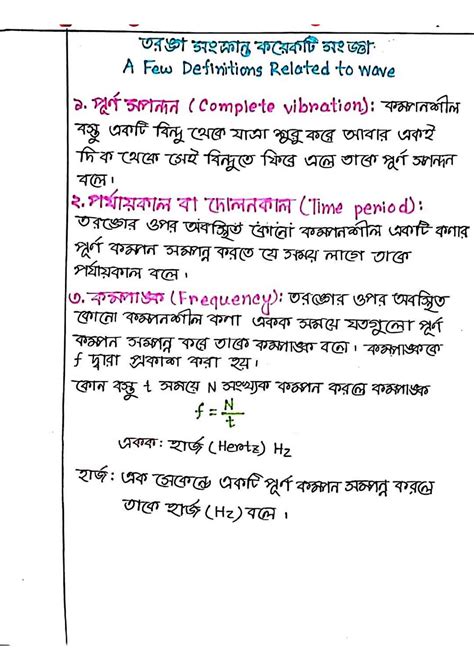 তরঙ্গ সংক্রান্ত কয়েকটি সংজ্ঞা
A Few Definitions Related to Wave
১. পূর্ণ স্পন্দন (Complete vibration): কম্পনশীল
বস্তু একটি বিন্দু থেকে যাত্রা শুরু করে আবার একই
দিক থেকে সেই বিন্দুতে ফিরে এলে তাকে পূর্ণ স্পন্দন
বলে।
২. পর্যায়কাল বা দোলনকাল (Time period):
তরঙ্গের ওপর অবস্থিত কোনো কম্পনশীল একটি কণার
পূর্ণ কম্পন সম্পন্ন করতে যে সময় লাগে তাকে
পর্যায়কাল বলে।
৩. কম্পাঙ্ক (Frequency): তরঙ্গের ওপর অবস্থিত
কোনো কম্পনশীল কণা একক সময়ে যতগুলো পূর্ণ
কম্পন সম্পন্ন করে তাকে কম্পাঙ্ক বলে। কম্পাঙ্ককে
f দ্বারা প্রকাশ করা হয়।
কোন বস্তু t সময়ে N সংখ্যক কম্পন করলে কম্পাঙ্ক
f = N/t
একক: হার্জ (Hertz) Hz
হার্জ: এক সেকেন্ডে একটি পূর্ণ কম্পন সম্পন্ন করলে
তাকে হার্জ (Hz) বলে।